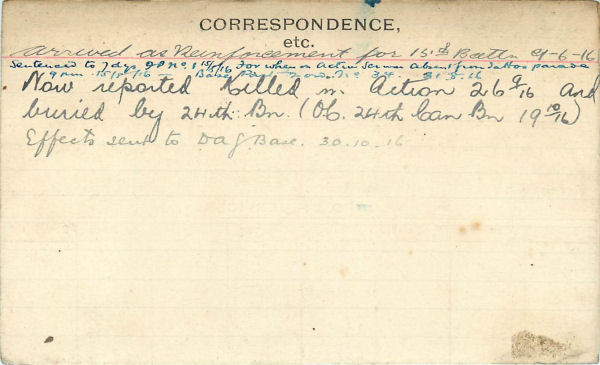 CORRESPONDENCE,
etc.
Arrived as Reinforcement for 15th Battn 9-6-16
Sentenced to 7 dys F.P. No 1 15/8/16 For when on Active Service absent from tattoo parade
9 pm 15/8/16 — 31.8.16
Now reported Killed in Action 26 9/16 and
buried by 24th Bn. (Ob. 24th Can Bn 19 10/16)
Effects sent to DAG Base. 30.10.16